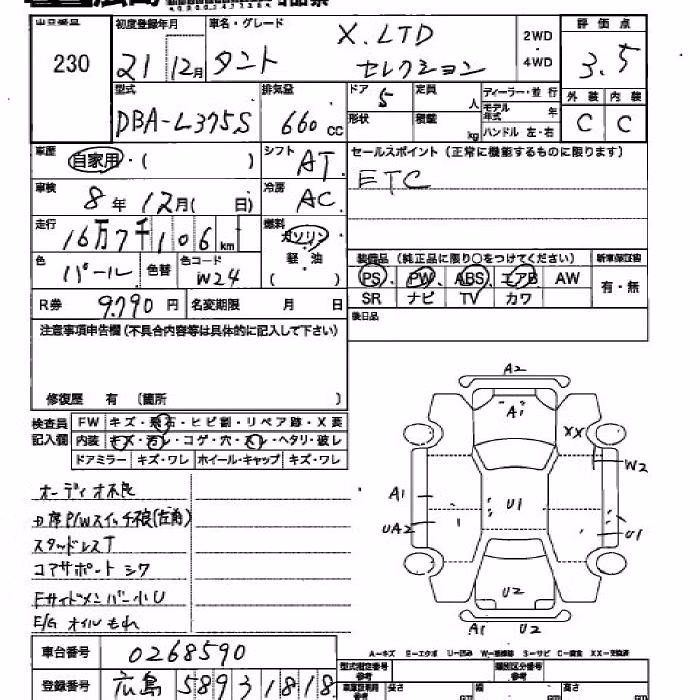 広島
出品番号 初度登録年月 車名・グレード X.LTD 2WD 評価点
230 21 12月 タント セレクション ・4WD 3.5
型式 排気量 ドア 5 定員 人 ディーラー・並行 外装 内装
DBA-L375S 660 CC 形状 積載 kg モデル年式 年 C C
ハンドル 左・右
車歴 自家用・( ) シフト AT セールスポイント(正常に機能するものに限ります)
車検 8年12月( 日) 冷房 AC ETC
走行 16万7千106km 燃料 ガソリン
色 パール 色替 色コード W24 軽・油 ( )
装備品(純正品に限り〇をつけてください) 新車保証書
PS PW ABS エアB AW 有・無
R券 9,790円 名変期限 月 日 SR ナビ TV カワ
注意事項申告欄(不具合内容等は具体的に記入して下さい) 後日品
修復歴 有 〔箇所 〕
検査員記入欄 FW キズ・飛石・ヒビ割・リペア跡・X要
内装 キズ・汚レ・コゲ・穴・スレ・ヘタリ・破レ
ドアミラー キズ・ワレ ホイール・キャップ キズ・ワレ
オーディオ不良
P/Wスイッチ不良(左前)
スタッドレスT
コアサポートシワ
Fサイドメンバー小U
E/G オイルもれ
A2
A1
XX
W2
A1
UA2
U1
U1
U2
A1 U2
A-キズ E-エクボ U-凹み W-補修跡 S-サビ C-腐食 XX-交換済
車台番号 0268590
登録番号 広島 589 3 1818
型式指定番号 参考 類別区分番号 参考
長さ 幅 高さ